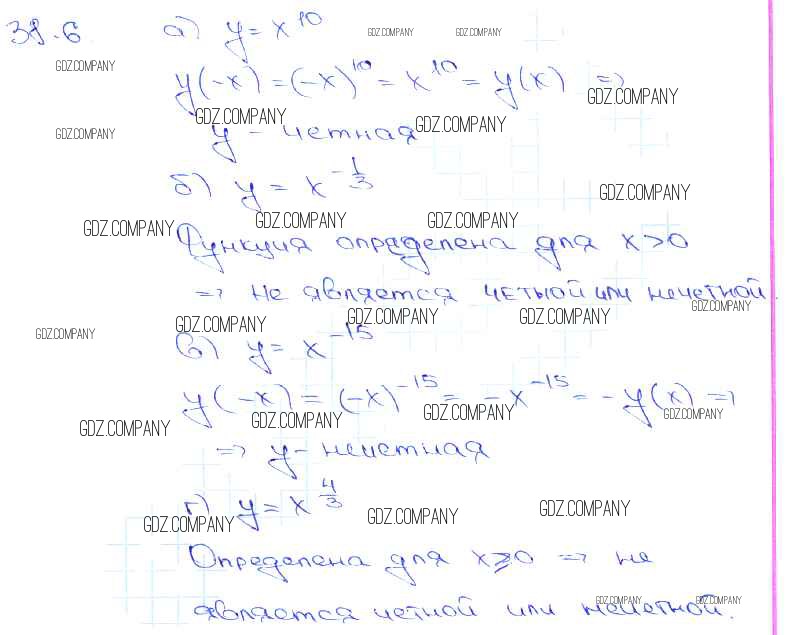 38.6. а) y = x^10 GDZ.COMPANY GDZ.COMPANY
GDZ.COMPANY
y(-x) = (-x)^10 = x^10 = y(x) =>
GDZ.COMPANY
GDZ.COMPANY GDZ.COMPANY
GDZ.COMPANY y - четная
б) y = x^(-1/3)
GDZ.COMPANY
GDZ.COMPANY GDZ.COMPANY GDZ.COMPANY
Функция определена для x>0
=> не является четной или нечетной.
GDZ.COMPANY
GDZ.COMPANY GDZ.COMPANY GDZ.COMPANY GDZ.COMPANY
в) y = x^(-15)
y(-x) = (-x)^(-15) = -x^(-15) = -y(x) =>
GDZ.COMPANY GDZ.COMPANY GDZ.COMPANY GDZ.COMPANY
=> y - нечетная
г) y = x^(4/3)
GDZ.COMPANY GDZ.COMPANY GDZ.COMPANY
Определена для x⩾0 => не
GDZ.COMPANY GDZ.COMPANY
является четной или нечетной.